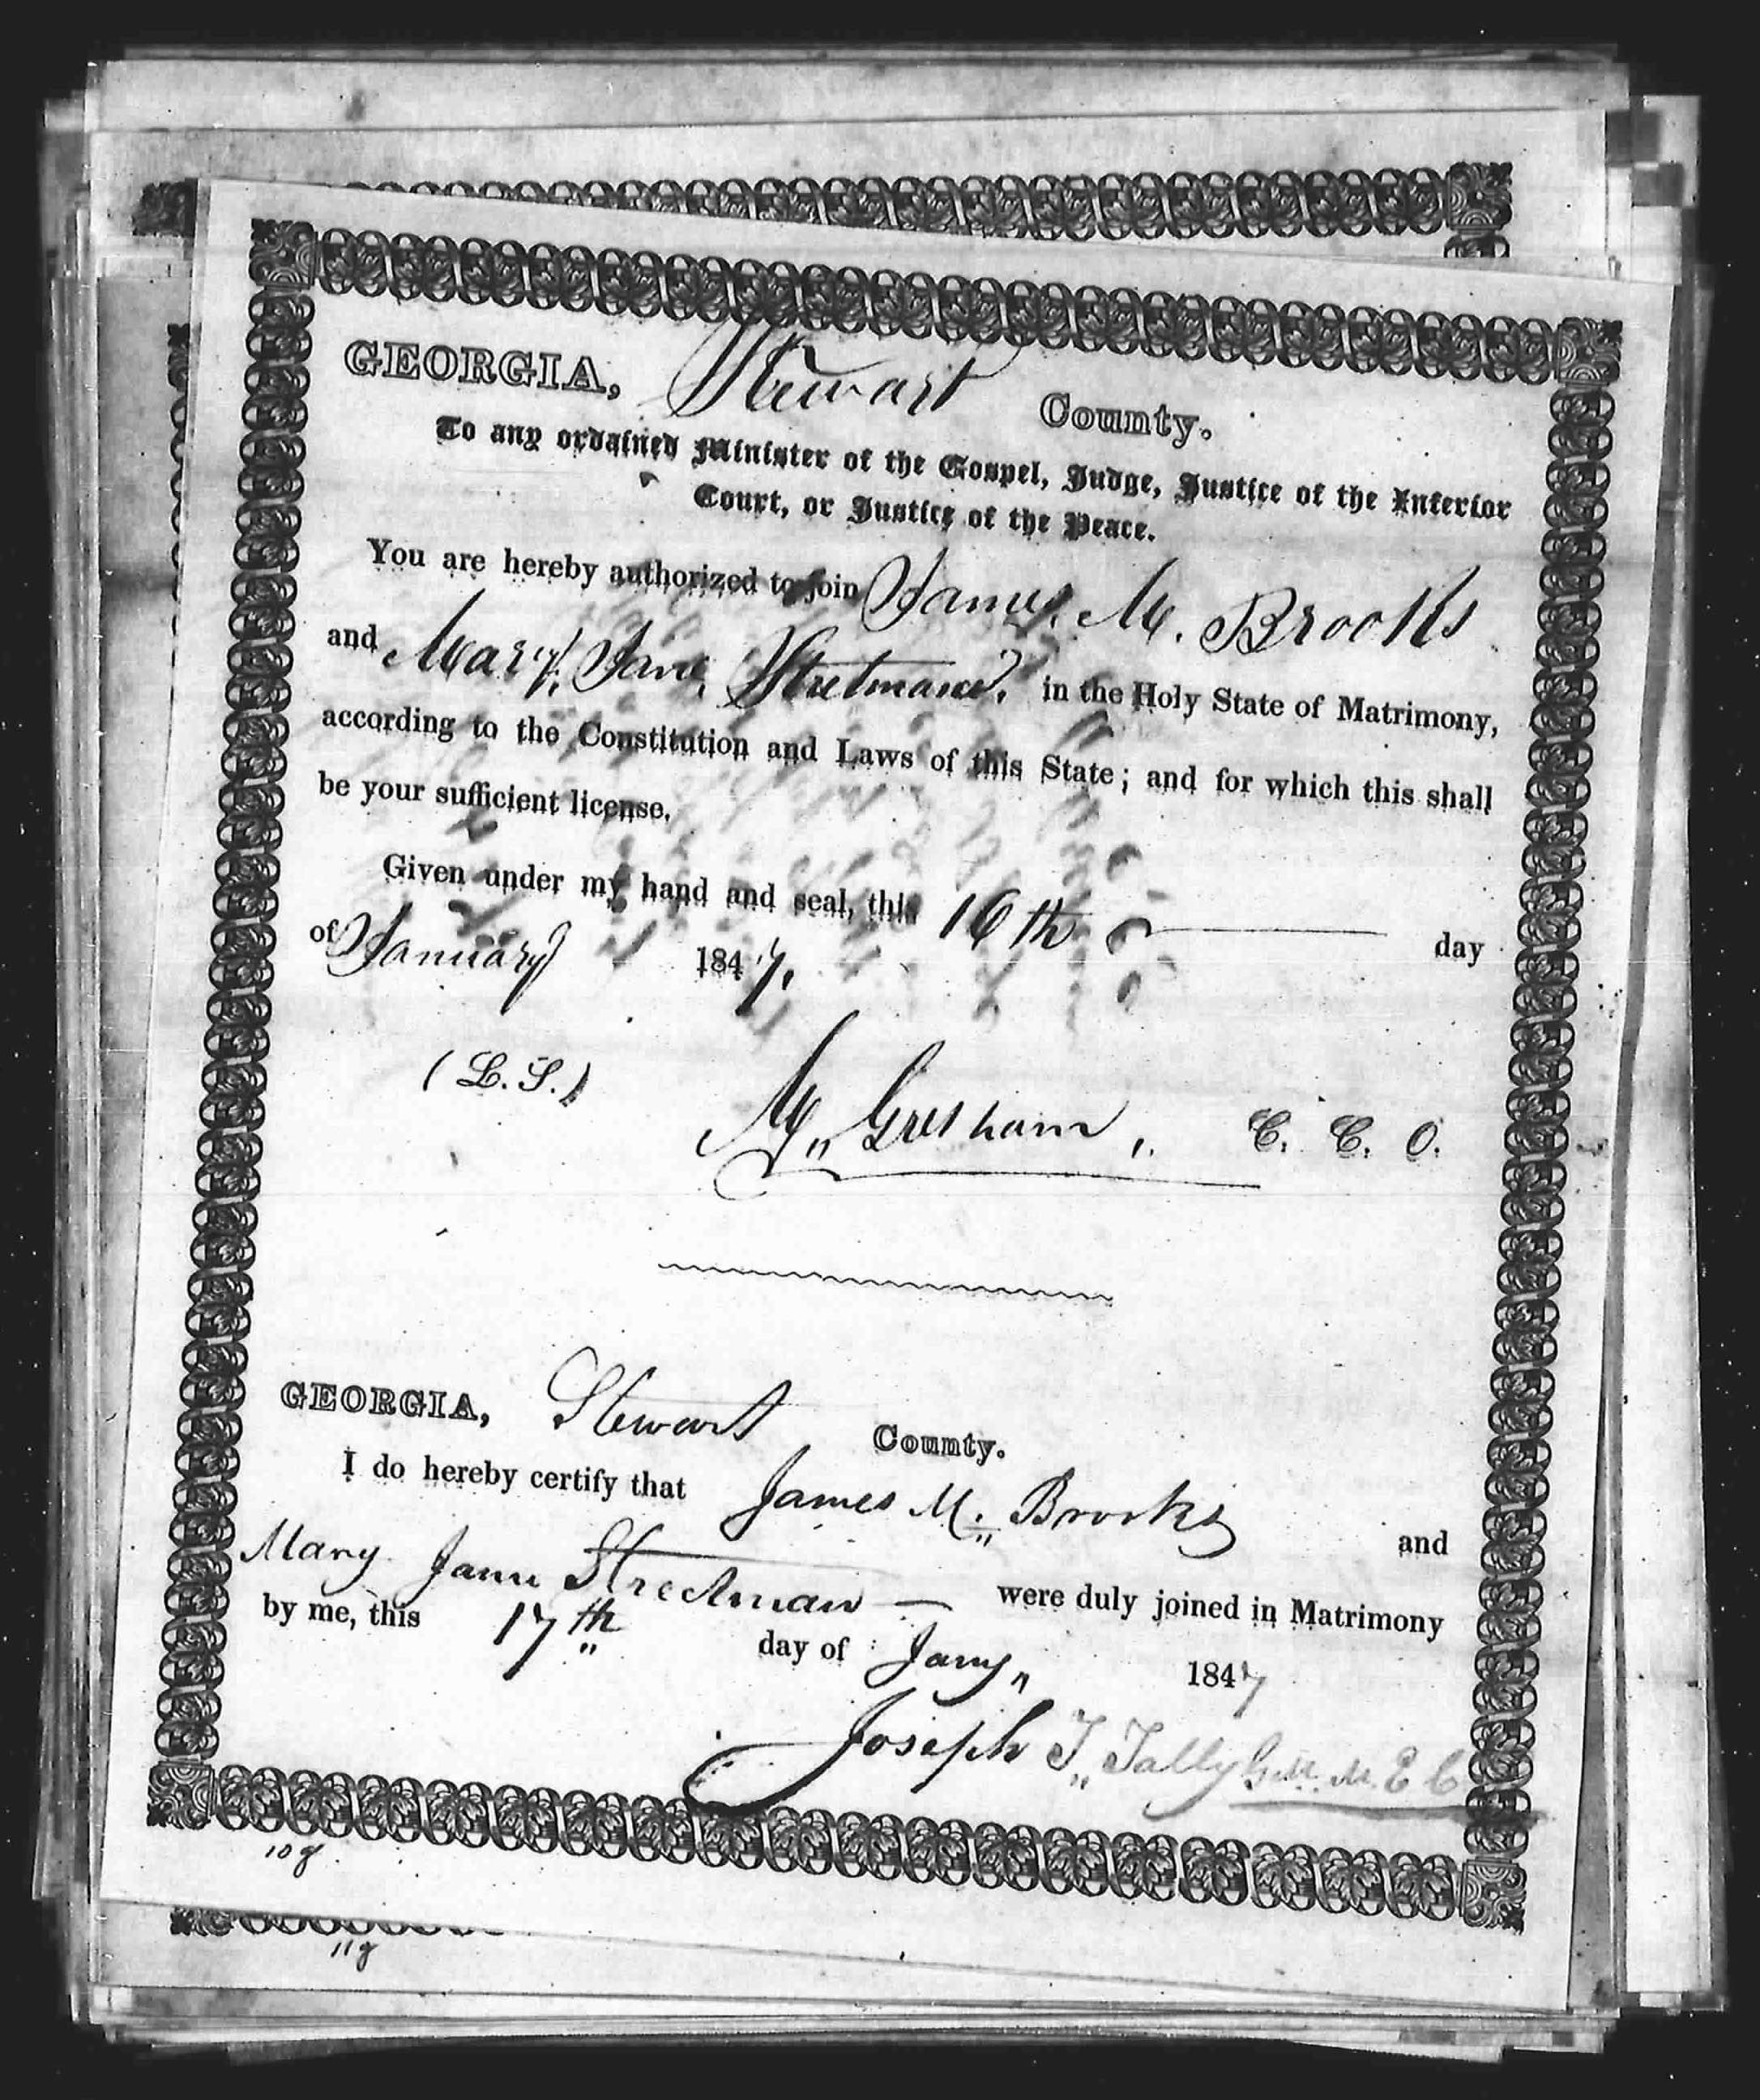 GEORGIA, Stewart County.
To any ordained Minister of the Gospel, Judge, Justice of the Inferior
Court, or Justice of the Peace.
You are hereby authorized to join James M. Brooks
and Mary Jane Stretman, in the Holy State of Matrimony,
according to the Constitution and Laws of this State; and for which this shall
be your sufficient license.
Given under my hand and seal, this 16th day
of January 1847.
(L. S.)
M,, Gresham, C. C. O.
GEORGIA, Stewart County.
I do hereby certify that James M. Brooks and
Mary Jane Streetman were duly joined in Matrimony
by me, this 17th day of Jany,, 1847
Joseph T,, Tally M. E C